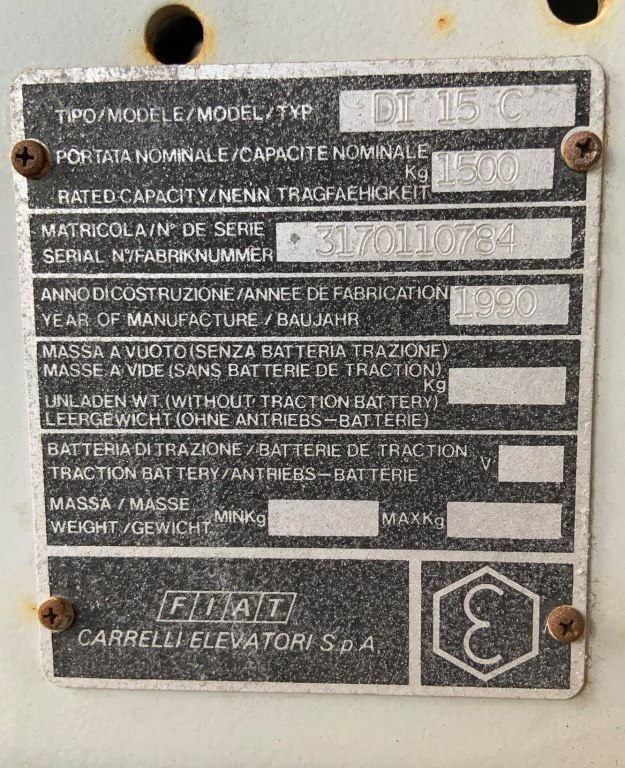 TIPO/MODELE/MODEL/TYP DI 15 C
PORTATA NOMINALE/CAPACITE NOMINALE
Kg 1500
RATED CAPACITY/NENN TRAGFAEHIGKEIT
MATRICOLA/N° DE SERIE
SERIAL N°/FABRIKNUMMER 3170110784
ANNO DI COSTRUZIONE/ANNEE DE FABRICATION 1990
YEAR OF MANUFACTURE/BAUJAHR
MASSA A VUOTO (SENZA BATTERIA TRAZIONE)
MASSE A VIDE (SANS BATTERIE DE TRACTION)
Kg
UNLADEN WT. (WITHOUT TRACTION BATTERY)
LEERGEWICHT (OHNE ANTRIEBS-BATTERIE)
BATTERIA DI TRAZIONE/BATTERIE DE TRACTION V
TRACTION BATTERY/ANTRIEBS-BATTERIE
MASSA/MASSE
WEIGHT/GEWICHT MIN Kg MAX Kg
FIAT
CARRELLI ELEVATORI S.p.A.
Ɛ